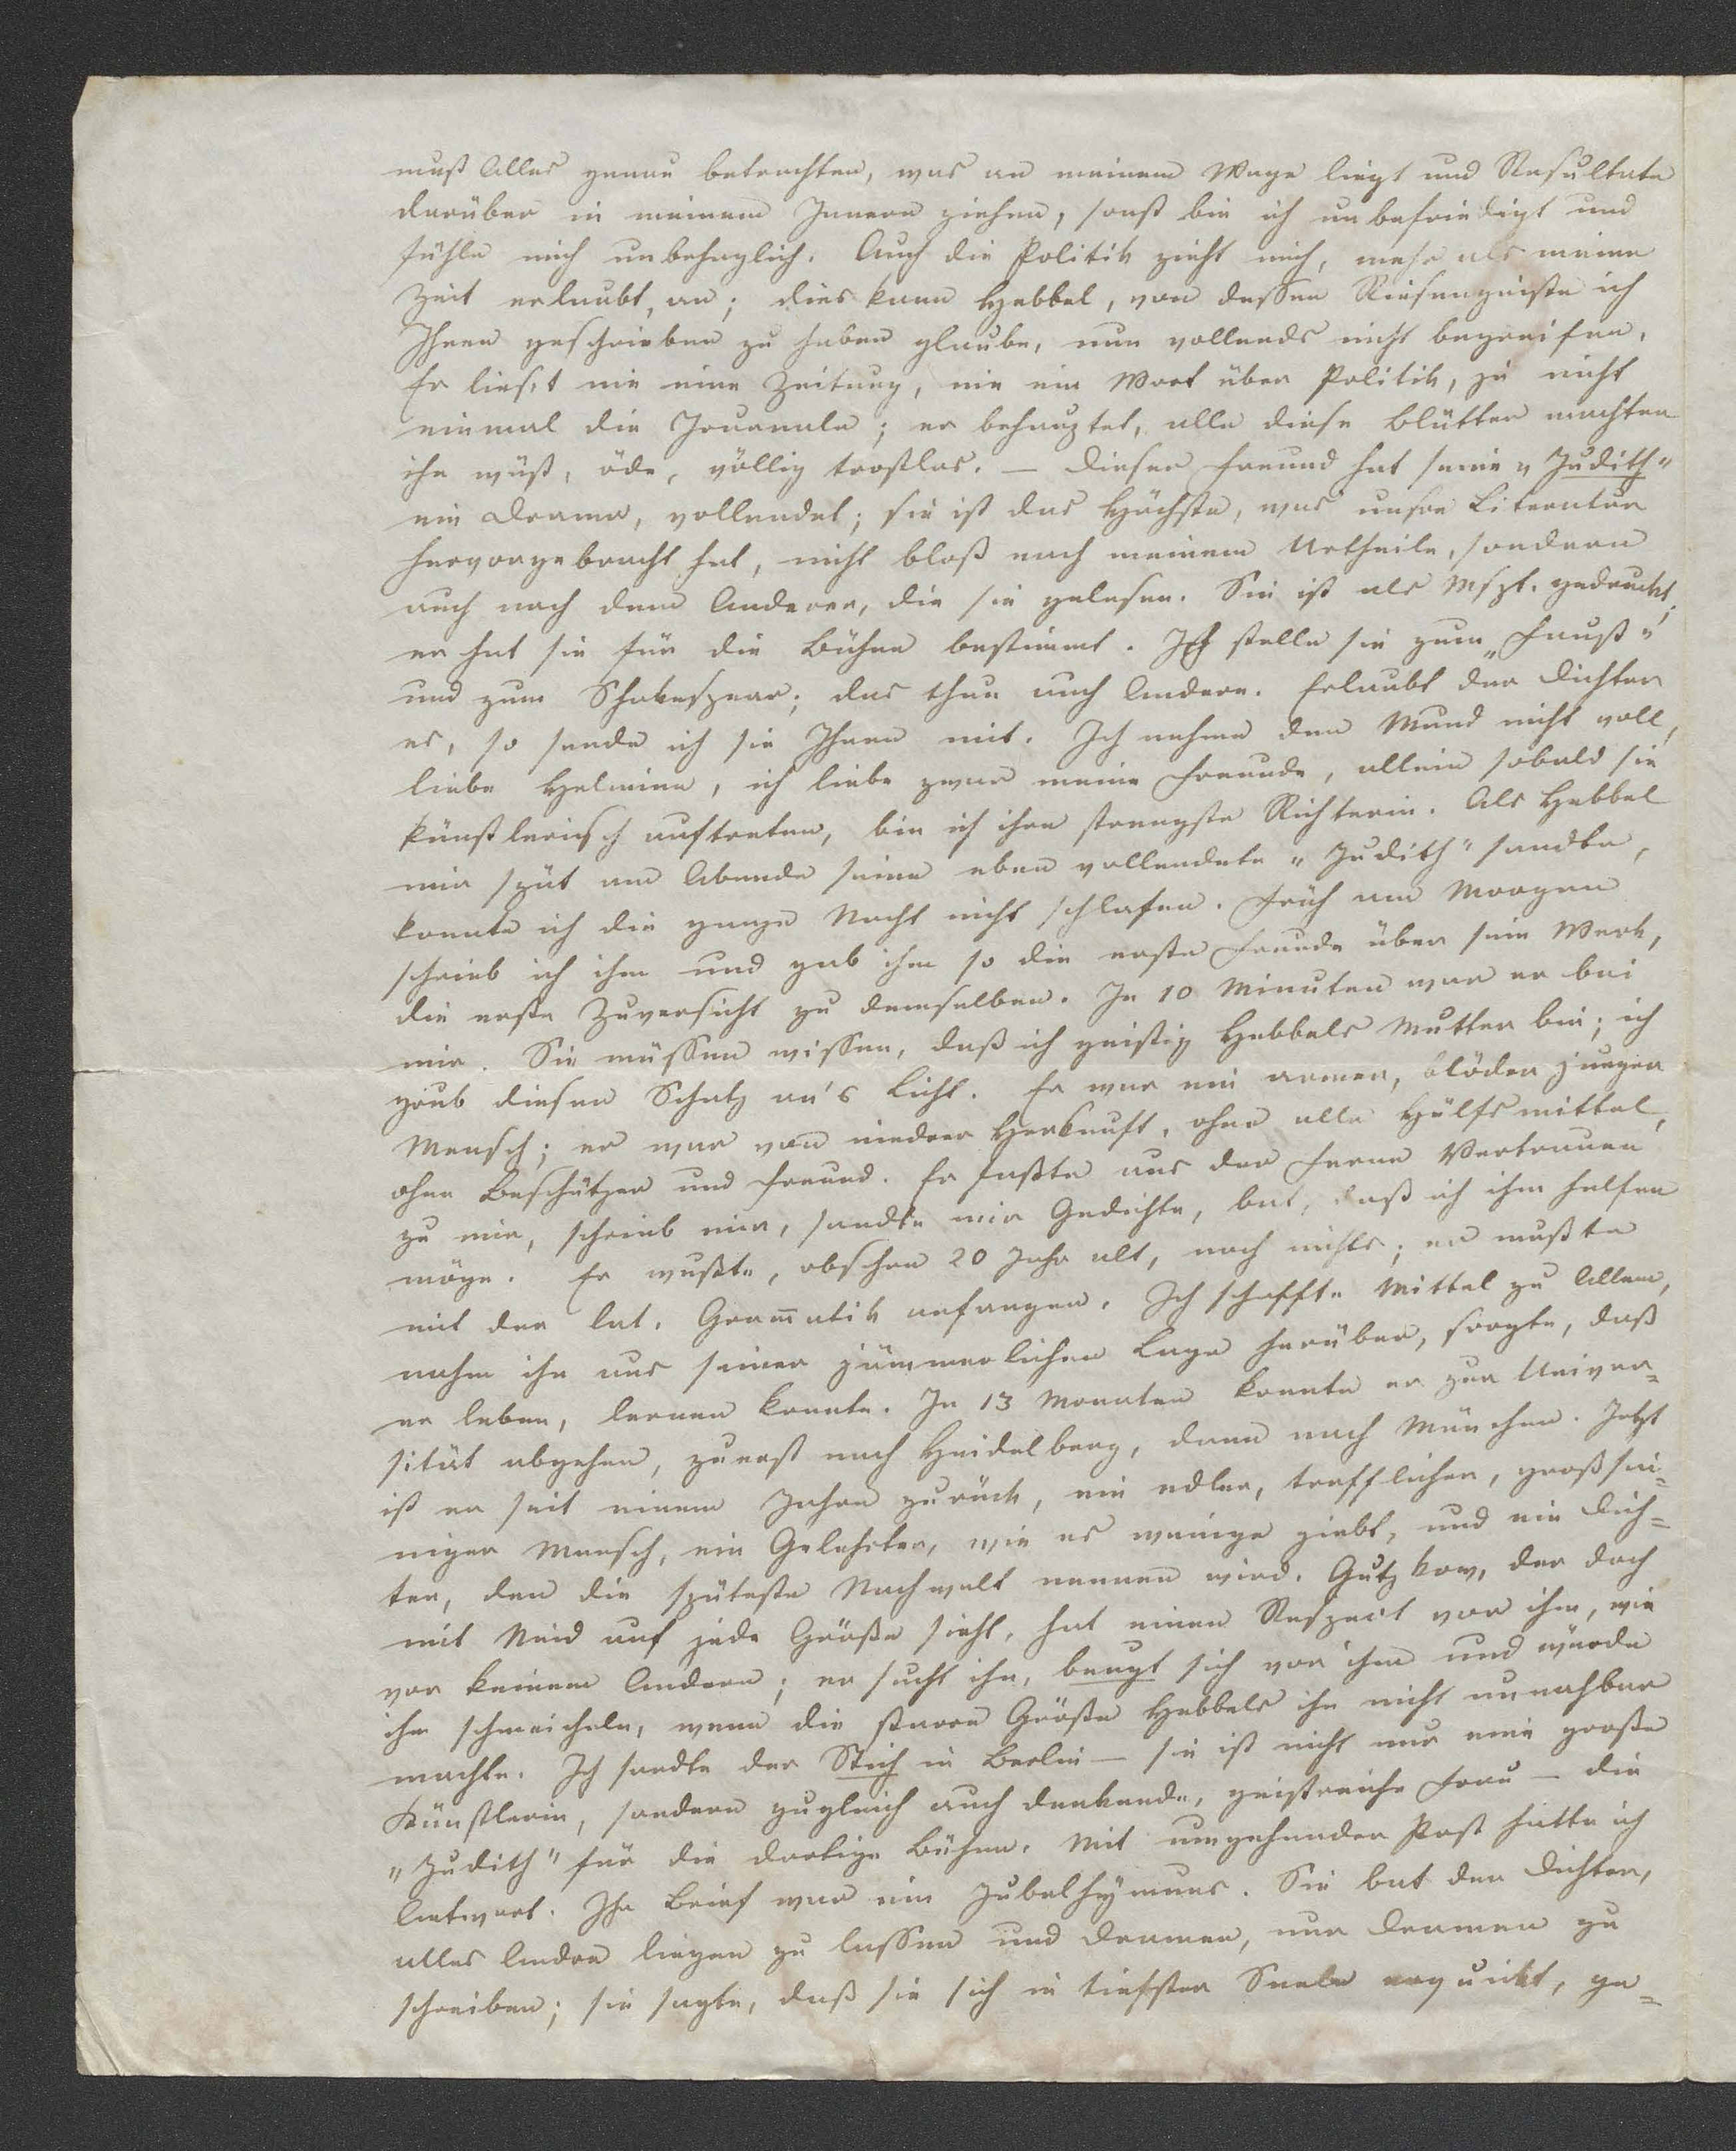 muß Alles genau betrachten, was an meinem Wege liegt und Resultate
darüber in meinem Innern ziehen, sonst bin ich unbefriedigt und
fühle mich unbehaglich. Auch die Politik zieht mich, mehr als meine
Zeit erlaubt, an; dies kann Hebbel, von dessen Riesengeiste ich
Ihnen geschrieben zu haben glaube, nun vollends nicht begreifen.
Er lieset nie eine Zeitung, nie ein Wort über Politik, ja nicht
einmal die Journale; er behauptet, alle diese Blätter machten
ihn wüst, öde, völlig trostlos. — Dieser Freund hat seine „Judith"
ein Drama, vollendet; sie ist das Höchste, was unsre Literatur
hervorgebracht hat, nicht bloß nach meinem Urtheile, sondern
auch nach dem Anderer, die sie gelesen. Sie ist als Mspt. gedruckt,
er hat sie für die Bühne bestimmt. Ich stelle sie zum „Faust"
und zum Shakespear; das thun auch Andere. Erlaubt der Dichter
es, so sende ich sie Ihnen mit. Ich nehme den Mund nicht voll,
liebe Helmine, ich liebe zwar meine Freunde, allein sobald sie
künstlerisch auftreten, bin ich ihre strengste Richterin. Als Hebbel
mir spät am Abende seine eben vollendete „Judith" sandte,
konnte ich die ganze Nacht nicht schlafen. Früh am Morgen
schrieb ich ihm und gab ihm so die erste Freude über sein Werk,
die erste Zuversicht zu demselben. In 10 Minuten war er bei
mir. Sie müssen wissen, daß ich geistig Hebbels Mutter bin; ich
grub diesen Schatz an's Licht. Er war ein armer, blöder junger
Mensch; er war von niedrer Herkunft, ohne alle Hülfsmittel,
ohne Beschützer und Freund. Er faßte aus der Ferne Vertrauen
zu mir, schrieb mir, sandte mir Gedichte, bat, daß ich ihm helfen
möge. Er wußte, obschon 20 Jahr alt, noch nichts; er mußte
mit der lat. Gram̅atik anfangen. Ich schaffte Mittel zu Allem,
nahm ihn aus seiner jämmerlichen Lage herüber, sorgte, daß
er leben, lernen konnte. In 13 Monaten konnte er zur Univer=
sität abgehen, zuerst nach Heidelberg, dann nach München. Jetzt
ist er seit einem Jahre zurück, ein edler, trefflicher, großsin=
niger Mensch, ein Gelehrter, wie es wenige giebt, und ein Dich=
ter, den die späteste Nachwelt nennen wird. Gutzkow, der doch
mit Neid auf jede Größe sieht, hat einen Respect vor ihm, wie
vor keinem Andern; er sucht ihn, beugt sich vor ihm und würde
ihm schmeicheln, wenn die starre Größe Hebbels ihn nicht unnahbar
machte. Ich sandte der Stich in Berlin — sie ist nicht nur eine große
Künstlerin, sondern zugleich auch denkende, geistreiche Frau — die
„Judith" für die dortige Bühne. Mit umgehender Post hatte ich
Antwort. Ihr Brief war ein Jubelhymnus. Sie bat den Dichter,
alles Andre liegen zu lassen und Dramen, nur Dramen zu
schreiben; sie sagte, daß sie sich in tiefster Seele erquickt, ge=